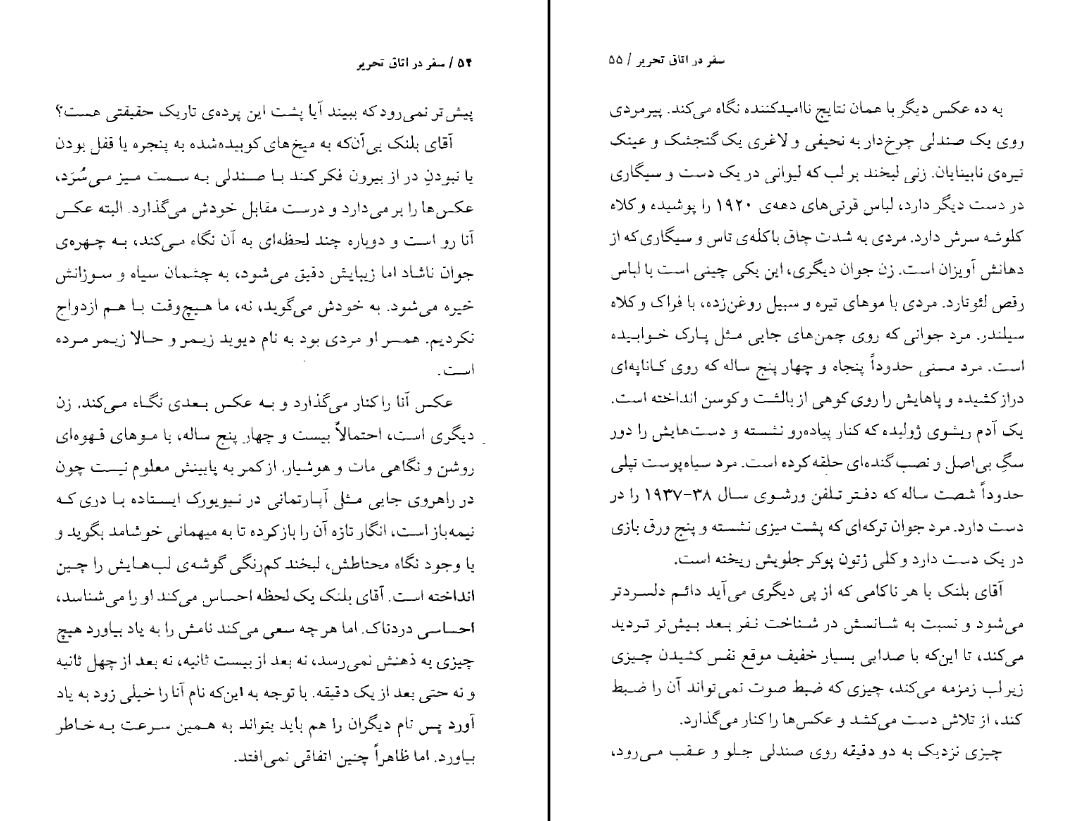 ۵۴ / سفر در اتاق تحریر
پیش‌تر نمی‌رود که ببیند آیا پشت این پرده‌ی تاریک حقیقتی هست؟
آقای بلنک بی‌آن‌که به میخ‌های کوبیده‌شده به پنجره و یا قفل بودن
یا نبودنِ در از بیرون فکر کند با صندلی به سمت میز می‌سُرَد،
عکس‌ها را بر می‌دارد و درست مقابل خودش می‌گذارد. البته عکس
آنا رو است و دوباره چند لحظه‌ای به آن نگاه می‌کند، به چهره‌ی
جوان ناشاد اما زیبایش دقیق می‌شود، به چشمان سیاه و سوزانش
خیره می‌شود. به خودش می‌گوید، نه، ما هیچ‌وقت با هم ازدواج
نکردیم. همسر او مردی بود به نام دیوید زیمر و حالا زیمر مرده
است.
عکس آنا را کنار می‌گذارد و به عکس بعدی نگاه می‌کند. زن
دیگری است، احتمالاً بیست و چهار پنج ساله، با موهای قهوه‌ای
روشن و نگاهی مات و هوشیار. از کمر به پایینش معلوم نیست چون
در راهروی جایی مثلی آپارتمانی در نیویورک ایستاده با دری که
نیمه‌باز است، انگار تازه آن را باز کرده تا به میهمانی خوشامد بگوید و
با وجود نگاه محتاطش، لبخند کم‌رنگی گوشه‌ی لب‌هایش را چین
انداخته است. آقای بلنک یک لحظه احساس می‌کند او را می‌شناسد،
احساسی دردناک. اما هر چه سعی می‌کند نامش را به یاد بیاورد هیچ
چیزی به ذهنش نمی‌رسد، نه بعد از بیست ثانیه، نه بعد از چهل ثانیه
و نه حتی بعد از یک دقیقه. با توجه به این‌که نام آنا را خیلی زود به یاد
آورد پس نام دیگران را هم باید بتواند به همین سرعت به خاطر
بیاورد. اما ظاهراً چنین اتفاقی نمی‌افتد.
سفر در اتاق تحریر / ۵۵
به ده عکس دیگر با همان نتایج ناامیدکننده نگاه می‌کند. پیرمردی
روی یک صندلی چرخ‌دار به نحیفی و لاغری یک گنجشک و عینک
تیره‌ی نابینایان. زنی لبخند بر لب که لیوانی در یک دست و سیگاری
در دست دیگر دارد، لباس قرتی‌های دهه‌ی ۱۹۲۰ را پوشیده و کلاه
کلوشه سرش دارد. مردی به شدت چاق با کله‌ی تاس و سیگاری که از
دهانش آویزان است. زن جوان دیگری، این یکی چینی است با لباس
رقص لئوتارد. مردی با موهای تیره و سبیل روغن‌زده، با فراک و کلاه
سیلندر. مرد جوانی که روی چمن‌های جایی مثل پارک خوابیده
است. مرد مسنی حدوداً پنجاه و چهار پنج ساله که روی کاناپه‌ای
دراز کشیده و پاهایش را روی کوهی از بالشت و کوسن انداخته است.
یک آدم ریشوی ژولیده که کنار پیاده‌رو نشسته و دست‌هایش را دور
سگِ بی‌اصل و نصب گنده‌ای حلقه کرده است. مرد سیاه‌پوست تپلی
حدوداً شصت ساله که دفتر تلفن ورشوی سال ۳۸-۱۹۳۷ را در
دست دارد. مرد جوان ترکه‌ای که پشت میزی نشسته و پنج ورق بازی
در یک دست دارد و کلی ژتون پوکر جلویش ریخته است.
آقای بلنک با هر ناکامی که از پی دیگری می‌آید دائم دلسردتر
می‌شود و نسبت به شانسش در شناخت نفر بعد بیش‌تر تردید
می‌کند، تا این‌که با صدایی بسیار خفیف موقع نفس کشیدن چیزی
زیر لب زمزمه می‌کند، چیزی که ضبط صوت نمی‌تواند آن را ضبط
کند، از تلاش دست می‌کشد و عکس‌ها را کنار می‌گذارد.
چیزی نزدیک به دو دقیقه روی صندلی جلو و عقب می‌رود،